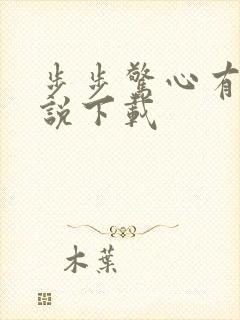 步步驚心有
說下載
木葉